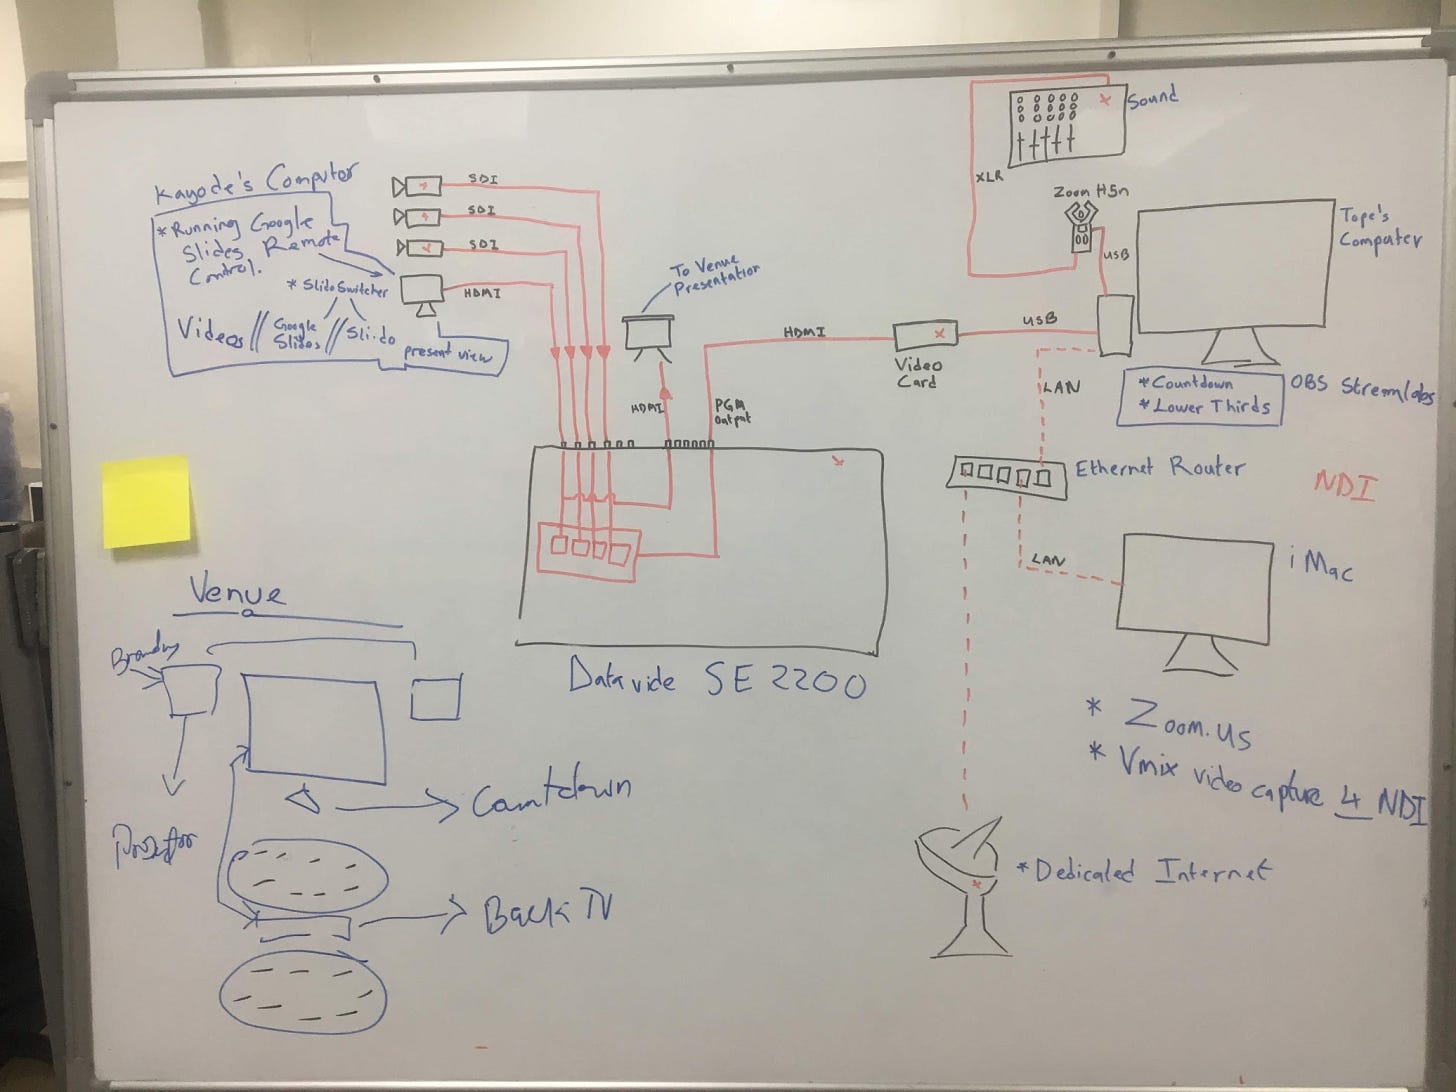 Kayode's Computer
* Running Google
Slides Remote
Control.
* Slido Switcher
Videos // Google Slides // Sli.do
present view
SDI
SDI
SDI
HDMI
To Venue
Presentation
HDMI
PGM
output
HDMI
Video
Card
USB
XLR
Sound
Zoom H5n
USB
Tope's
Computer
LAN
* Countdown
* Lower Thirds
OBS Streamlabs
Ethernet Router
NDI
LAN
iMac
* Zoom.us
* Vmix video capture 4 NDI
* Dedicated Internet
Datavide SE 2200
Venue
Branding
Countdown
Back TV